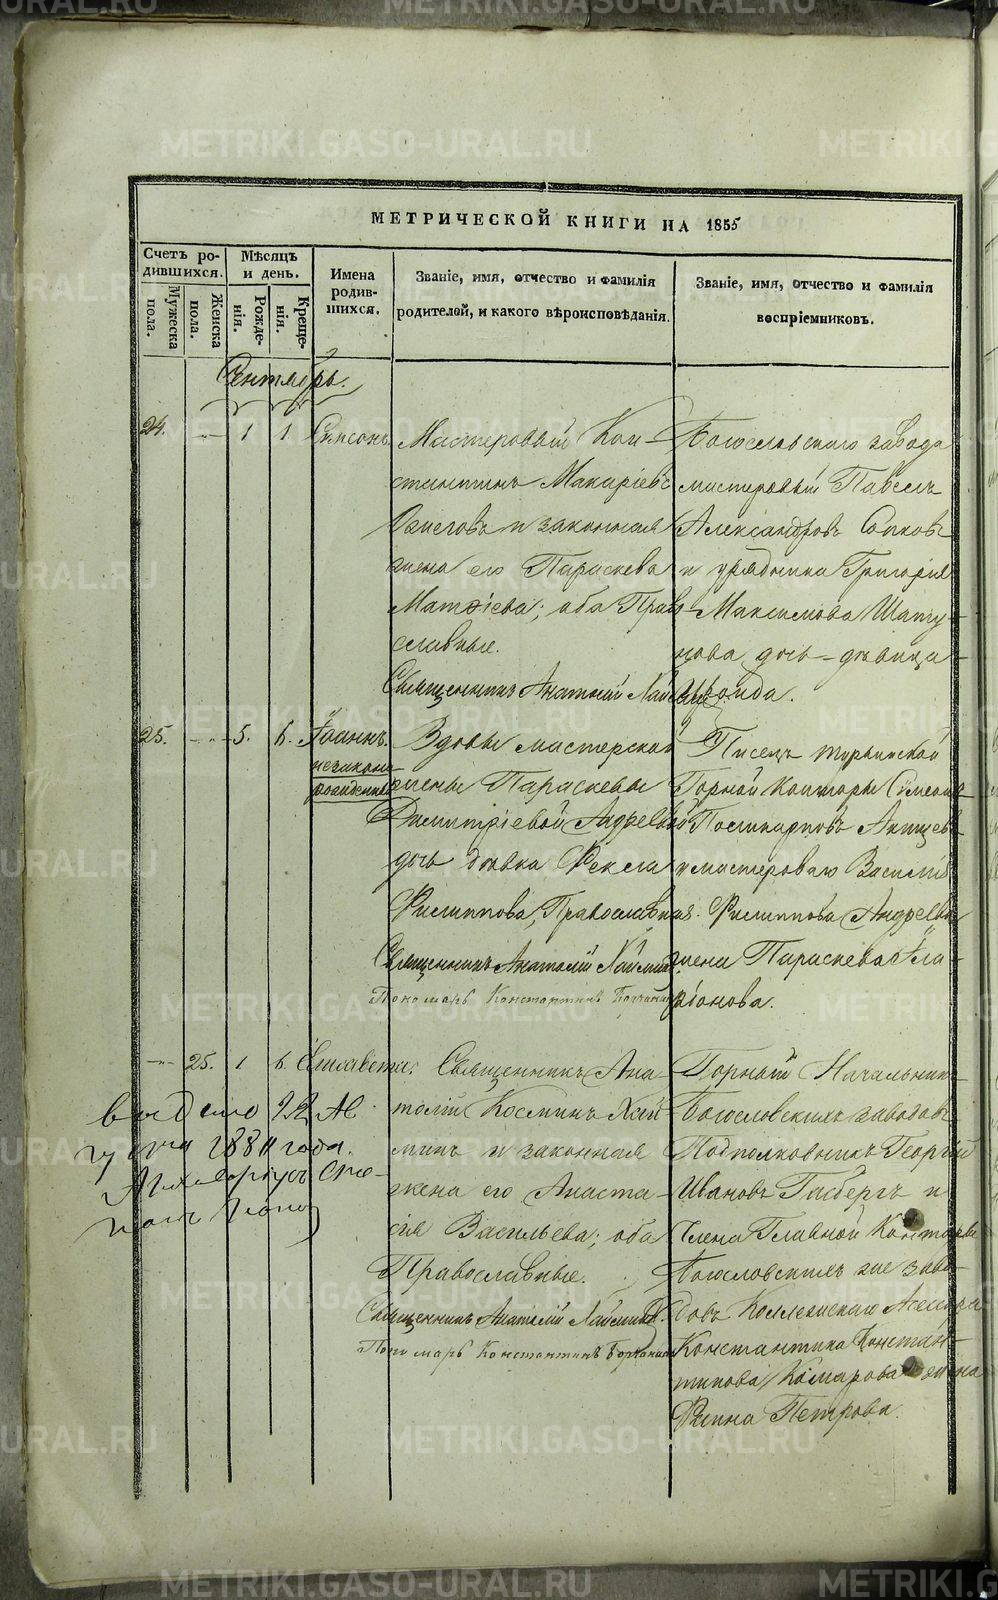 МЕТРИЧЕСКОЙ КНИГИ НА 1855
Счетъ ро-
дившихся.
Мѣсяцъ
и день.
Мужеска
пола.
Женска
пола.
Рожде-
нія.
Креще-
нія.
Имена
родив-
шихся.
Званіе, имя, отчество и фамилія
родителей, и какого вѣроисповѣданія.
Званіе, имя, отчество и фамилія
воспріемниковъ.
Сентябрь.
24. 1 1
Мастеровый Кон-
стантинъ Макаріевъ
и законная
жена его Параскева
Матѳіева; оба Право-
славные.
Священникъ Анатолій
Богословскаго завода
мастеровый Павелъ
Александровъ
и урядника Григорія
Максимова Шату-
нова дочь-дѣвица
25. 5. 6. Іоаннъ.
незаконно-
рожденный
Вдовы мастерской
жены Параскевы
Димитріевой Андреевой
дочь дѣвка Ѳекла
Филиппова, Православная.
Священникъ Анатолій Хаймин
Пономарь Константинъ
Писецъ Турьинской
Горной Конторы Сумеонъ
Поликарповъ
и мастероваго Василія
Филиппова Андреева
жена Параскева Ила-
ріонова.
25. 1 6. Елисавета.
Священникъ Ана-
толій Космичъ Хай-
минъ и законная
жена его Анаста-
сія Васильева; оба
Православные.
Священникъ Анатолій Хайминъ.
Пономарь Константинъ
Горный Начальникъ
Богословскихъ заводовъ
Подполковникъ Георгій
Ивановъ Гасбергъ и
Члена Главной Конторы
Богословскихъ же заво-
довъ Коллежскаго Асессора
Константина Констан-
тинова Комарова жена
Петрова.
выдано 22 Ав-
густа года.